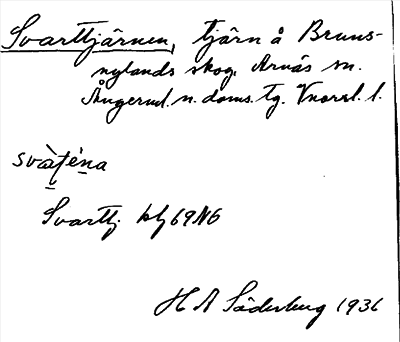 Svarttjärnen, tjärn å Bruns-
nylands skog, Arnäs sn.
Ångerml. n. doms. tg. Vnorrl. l.
svàt̯èna
Svarttj. blj 69 NG
H A Söderberg 1936